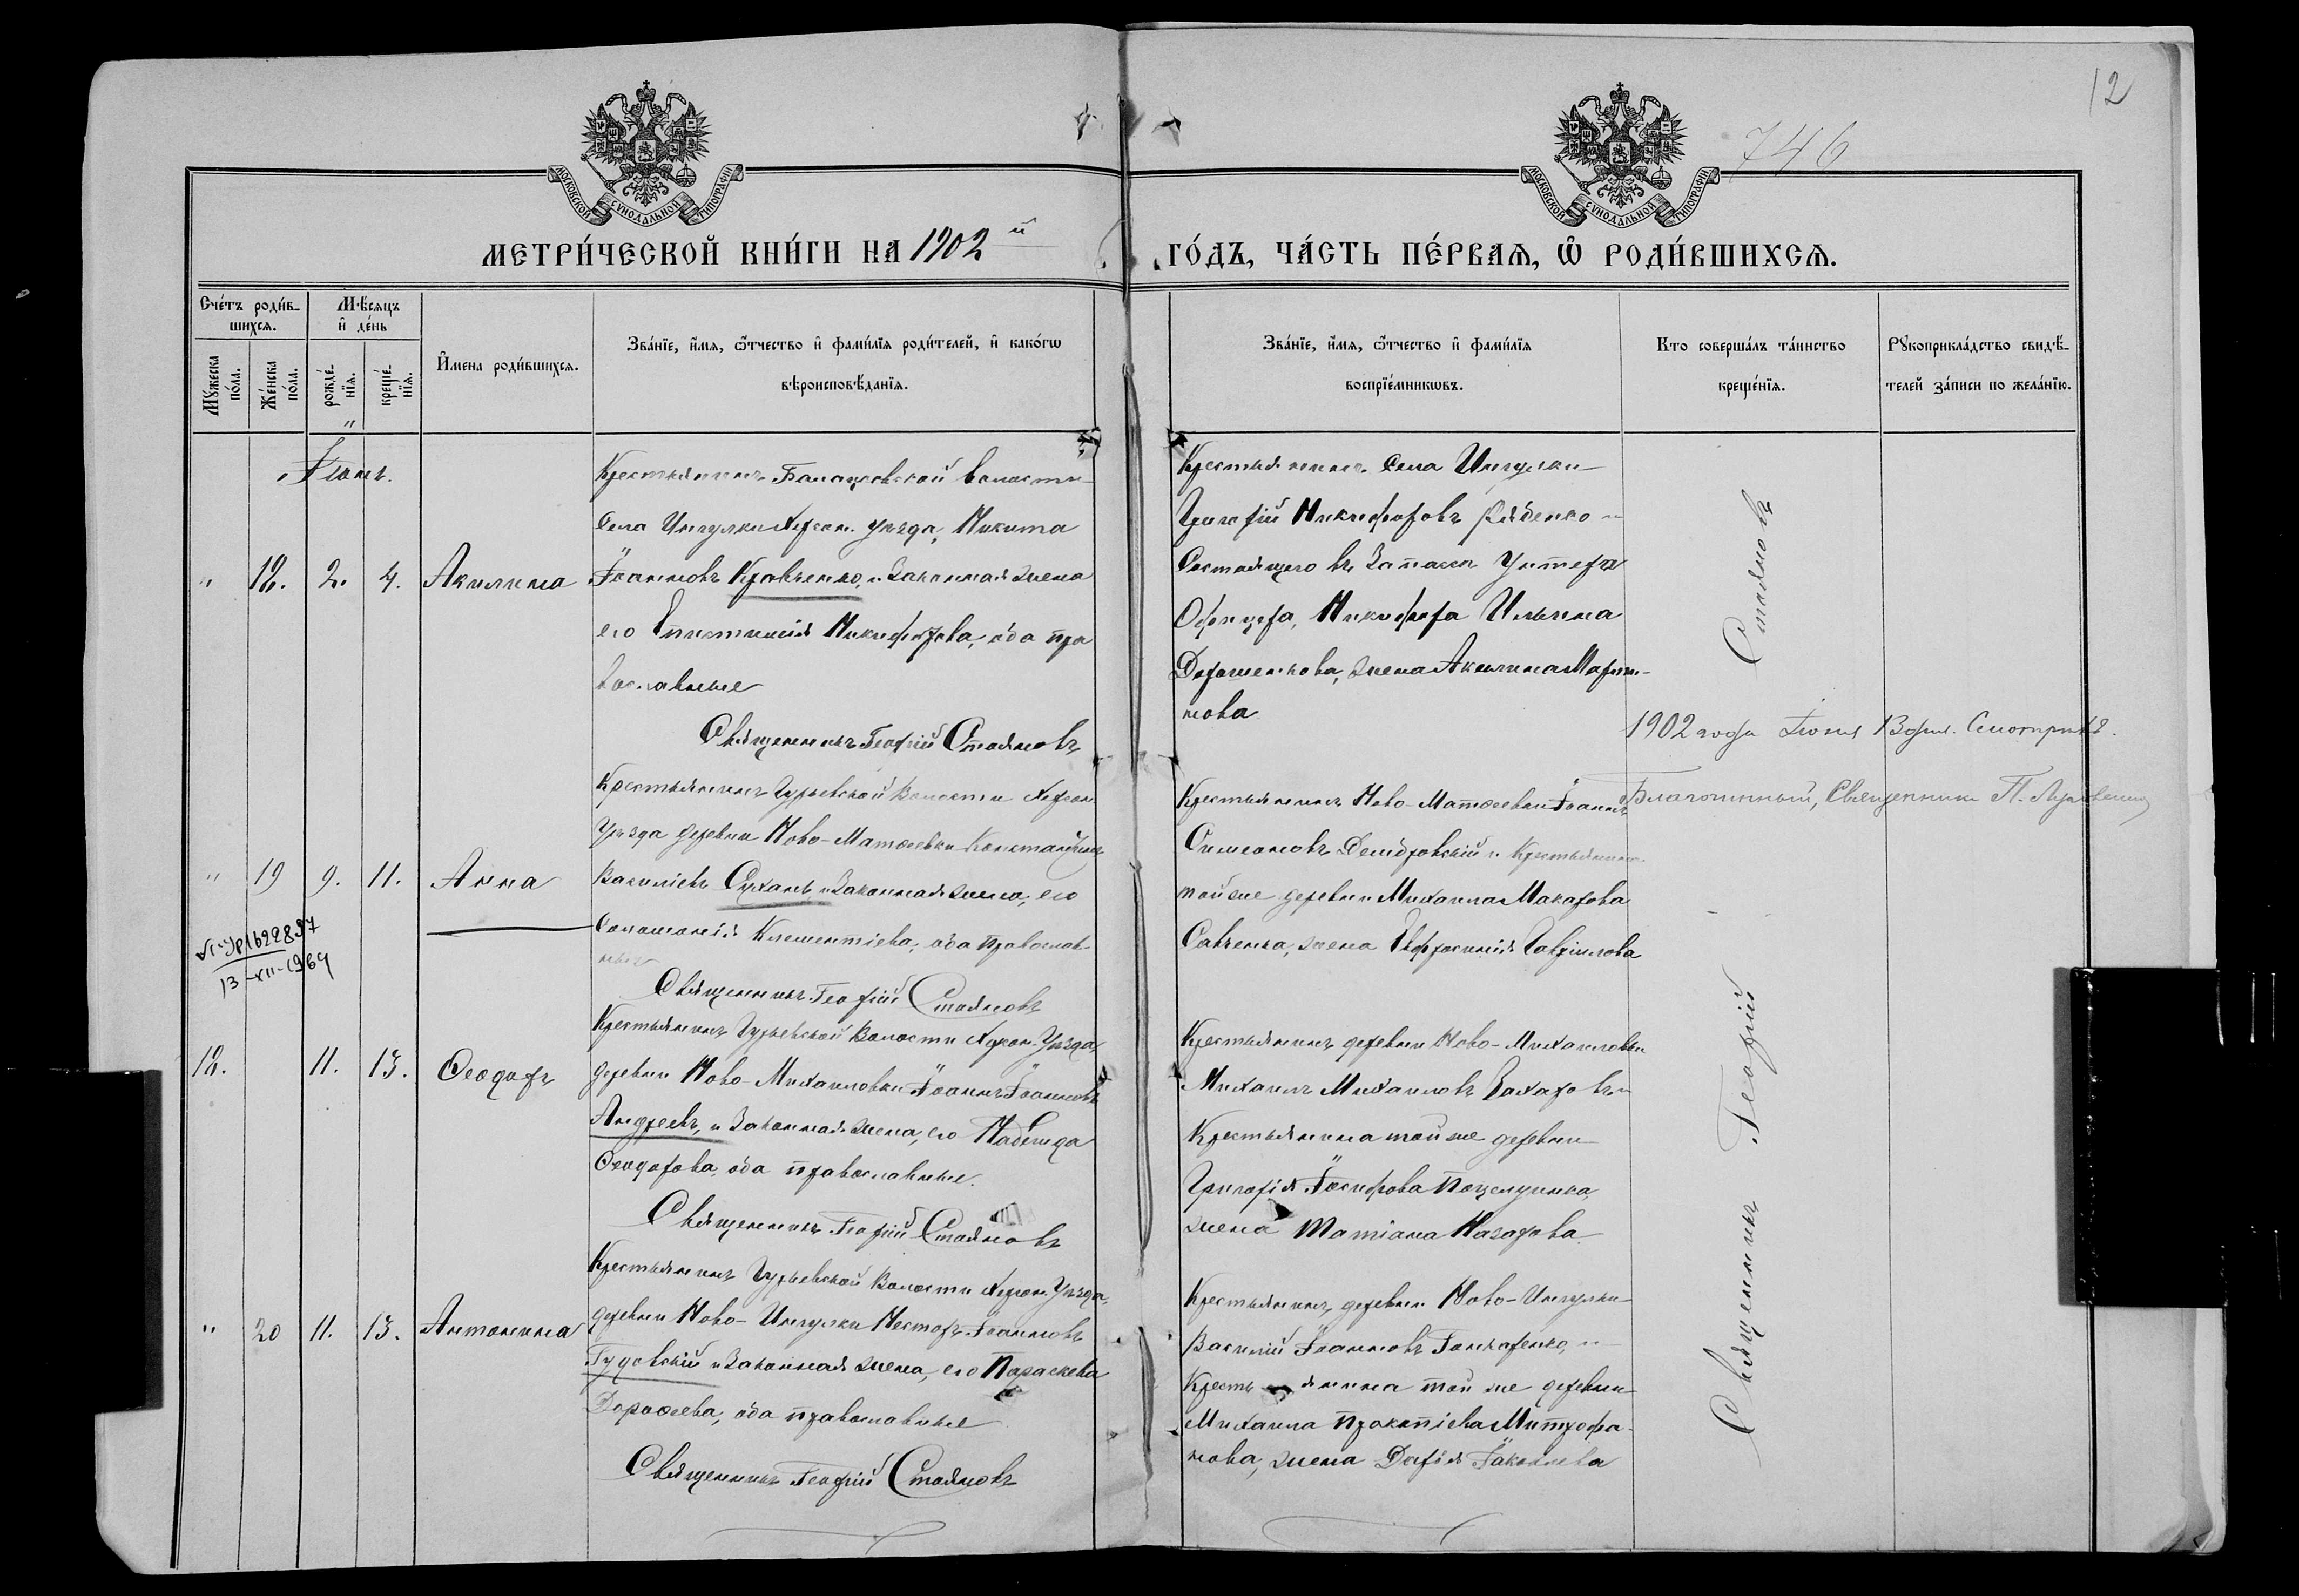 12
746
МОСКОВСКОЙ СѴНОДАЛЬНОЙ ТИПОГРАФІИ
МОСКОВСКОЙ СѴНОДАЛЬНОЙ ТИПОГРАФІИ
МЕТРИ́ЧЕСКОЙ КНИ́ГИ НА 1902й
ГО́ДЪ, ЧА́СТЬ ПЕ́РВАѦ, Ѡ РОДИ́ВШИХСѦ.
Сче́тъ роди́вшихсѧ.
Мꙋ́жеска по́ла.
Же́нска по́ла.
Мѣ́сѧцъ и҆ де́нь
рожде́нїѧ.
креще́нїѧ.
И҆мена роди́вшихсѧ.
Зва́нїе, и҆́мѧ, ѻ҆́тчество и҆ фами́лїѧ роди́телей, и҆ како́гѡ
вѣроисповѣ́данїѧ.
Зва́нїе, и҆́мѧ, ѻ҆́тчество и҆ фами́лїѧ
воспрїе́мникѡвъ.
Кто соверша́лъ та́инство
креще́нїѧ.
Рꙋкоприкла́дство свидѣ́-
телей за́писи по жела́нїю.
Іюнь.
" 18. 2. 4. Акилина
Крестьянинъ Балацковской волости
села Ингулки Херсон. уѣзда, Никита
Іоанновъ Кравченко, и законная жена
его Епистимія Никифорова, оба пра
вославные
Священникъ Георгій Стояновъ
Крестьянинъ села Ингулки
Григорій Никифоровъ Рябенко и
Состоящего въ Запасѣ Унтеръ
Офицера, Никифора Ильина
Дорошенкова, жена Акилина Марти-
нова
" 19 9. 11. Анна
Крестьянинъ Гурьевской Волости Херсон.
Уѣзда деревни Ново-Матвеевки Константинъ
Василіевъ Суханъ, и Законная жена, его
Соломонія Климентіева, оба Православ-
ные
Священникъ Георгій Стояновъ
Крестьянинъ Ново-Матвеевки Іоаннъ
Симеоновъ Домбровскій и Крестьянина
той же деревни Михаила Макарова
Савченка, жена Евфросинія Гавріилова
1622897
13-XII-1969
18. 11. 13. Ѳеодоръ
Крестьянинъ Гурьевской Волости Херсон. Уѣзда,
деревни Ново-Михайловки Іоаннъ Іоанновъ
Андреевъ, и Законная жена, его Надежда
Ѳеодорова, оба православные.
Священникъ Георгій Стояновъ
Крестьянинъ деревни Ново-Михайловки
Михаилъ Михаиловъ Захаровъ и
Крестьянина той же деревни
Григорія Іосифова
жена Татіана Назарова
" 20 11. 13. Антонина
Крестьянинъ Гурьевской Волости Херсон. Уѣзда,
деревни Ново-Ингулки Несторъ Іоанновъ
Гудовскій и Законная жена, его Параскева
Дорофеева, оба православные
Священникъ Георгій Стояновъ
Крестьянинъ, деревни Ново-Ингулки
Василій Іоанновъ Гончаренко, и
Крестьянина той же деревни
Михаила Прокопіева Митрофа-
нова, жена Дарія Іаковлева
Священникъ Георгій Стояновъ
1902 года Іюня 13 дня. Смотрилъ.
Благочинный, Священникъ П.